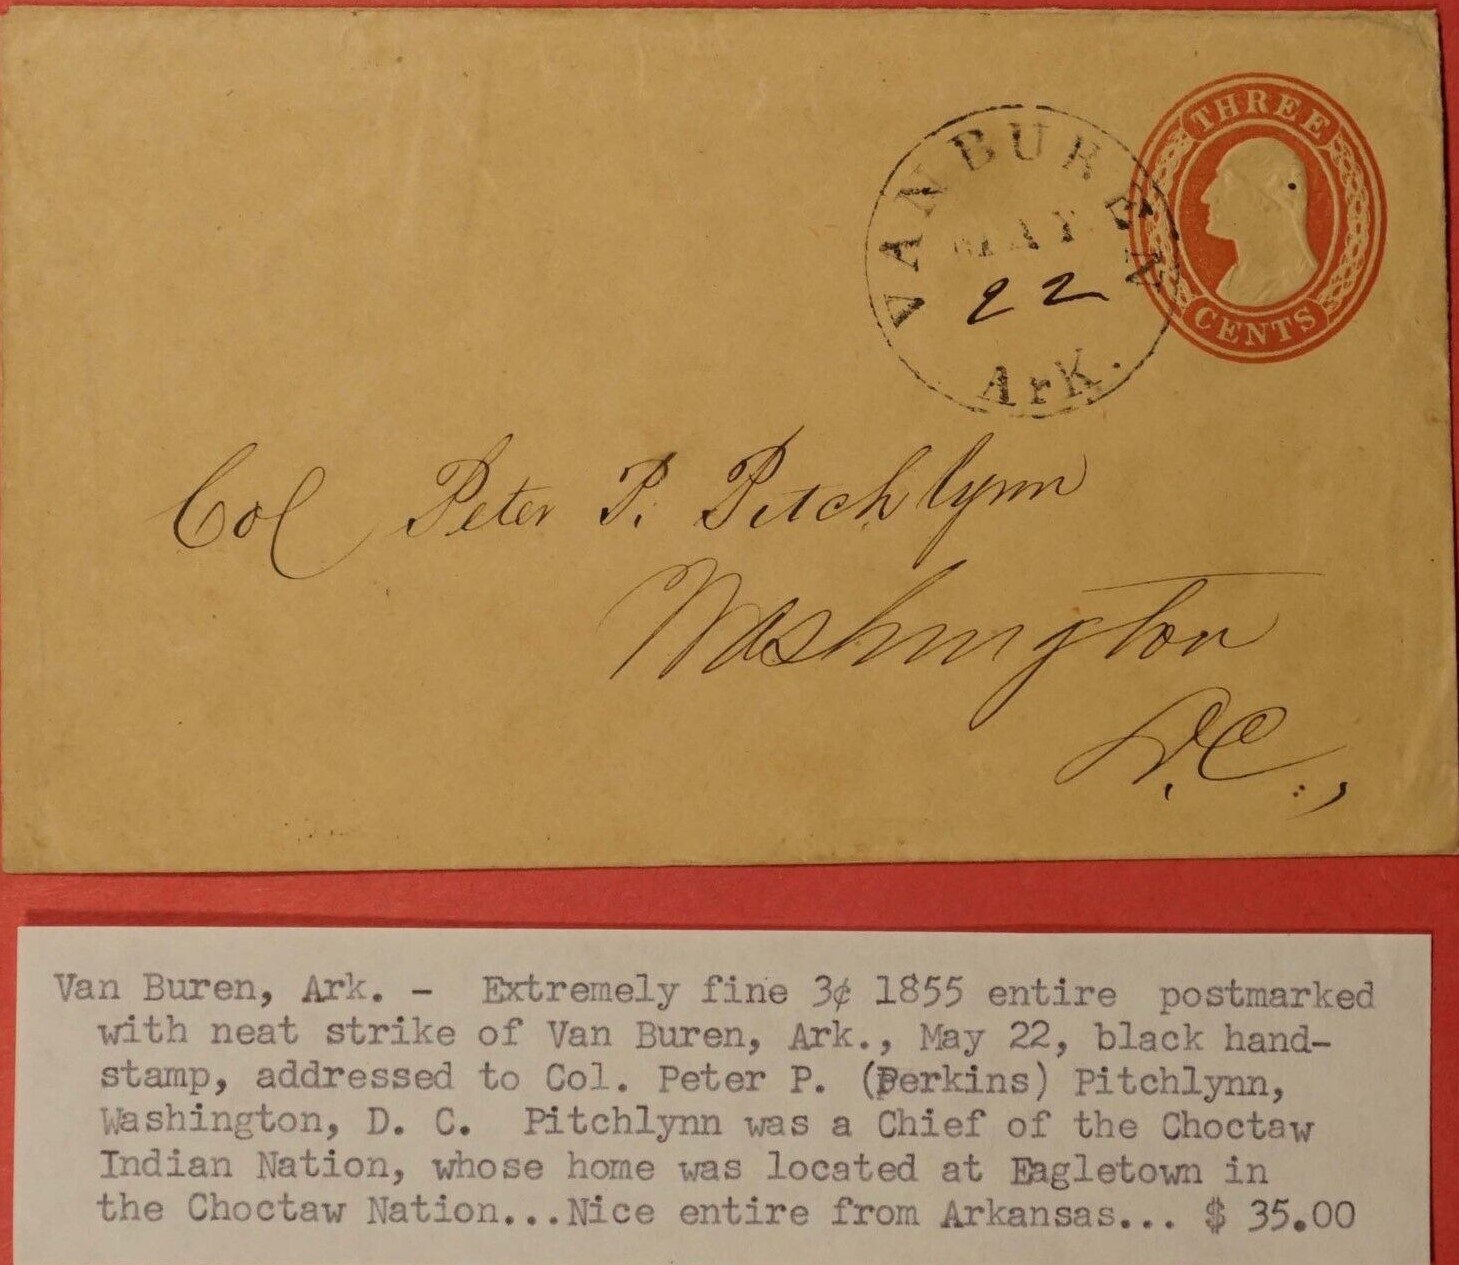 THREE
CENTS
VAN BUREN
MAY
22
ArK.
Col Peter P. Pitchlynn
Washington
D.C.,
Van Buren, Ark. - Extremely fine 3¢ 1855 entire postmarked
with neat strike of Van Buren, Ark., May 22, black hand-
stamp, addressed to Col. Peter P. (Perkins) Pitchlynn,
Washington, D. C. Pitchlynn was a Chief of the Choctaw
Indian Nation, whose home was located at Eagletown in
the Choctaw Nation...Nice entire from Arkansas... $ 35.00